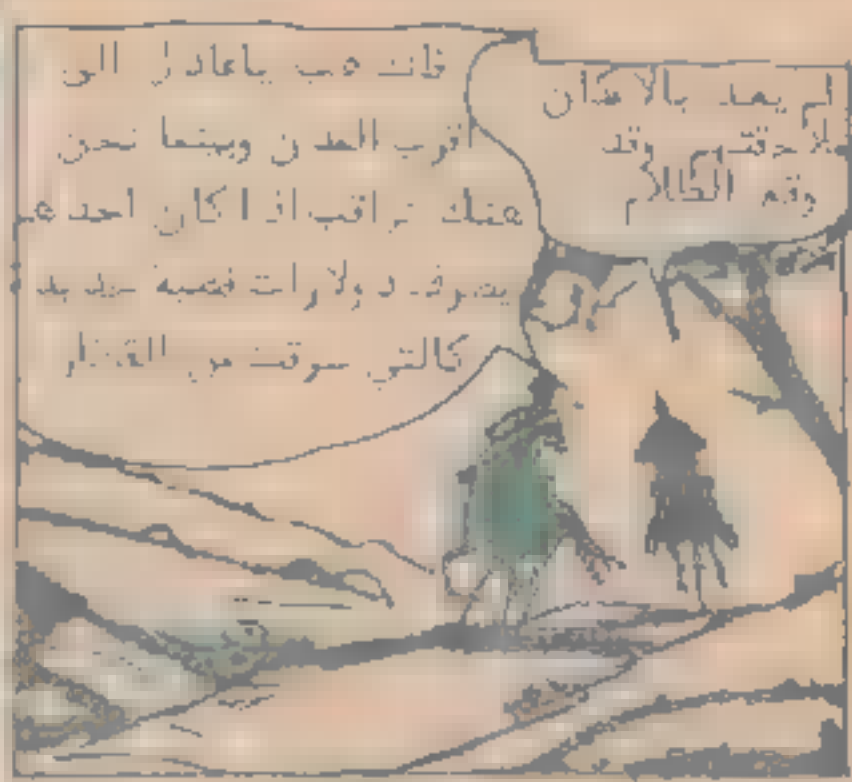 لم يعد بالامكان
وقد
وقع الظلام
ياعادل الى
اقرب المدن وبينما نحن
هناك نراقب اذا كان احد
يصرف دولارات فضية جديدة
كالتي سرقت من القطار